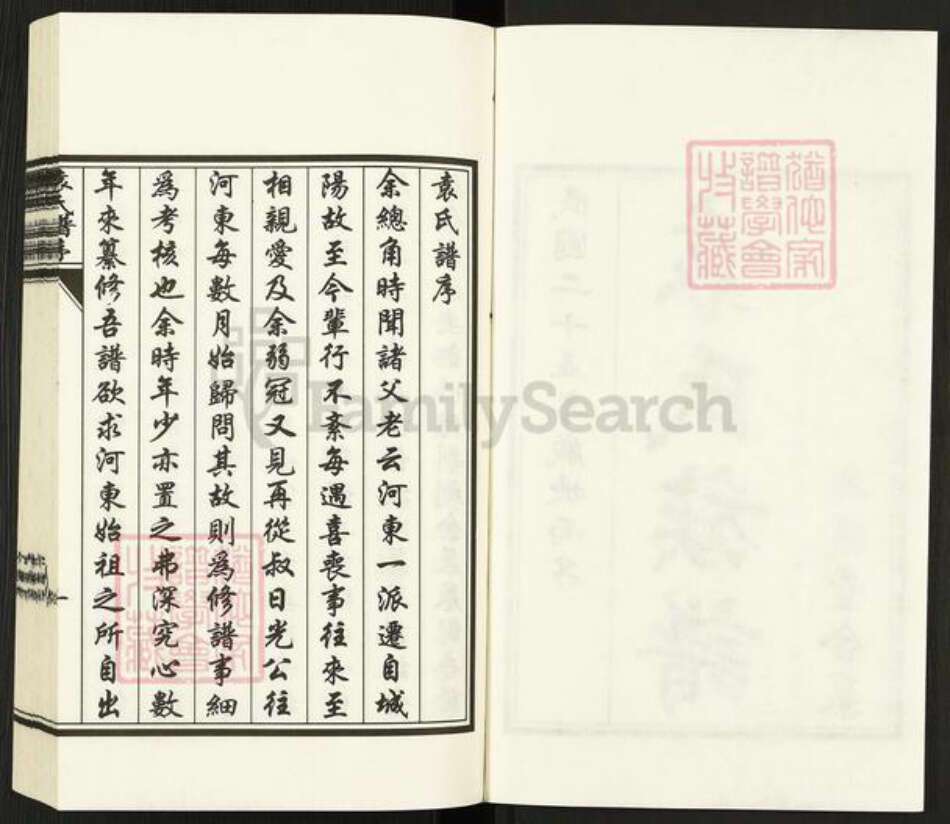 袁氏譜序
余總角時聞諸父老云河東一派遷自城
陽故至今輩行不紊每遇喜喪事往來至
相親愛及余弱冠又見再從叔日光公往
河東每數月始歸問其故則為修譜事細
為考核也余時年少亦置之弗深究心數
年來纂修吾譜欲求河東始祖之所自出
袁氏譜序
一
猶他家
譜學會
收藏
猶他家
譜學會
收藏
FamilySearch